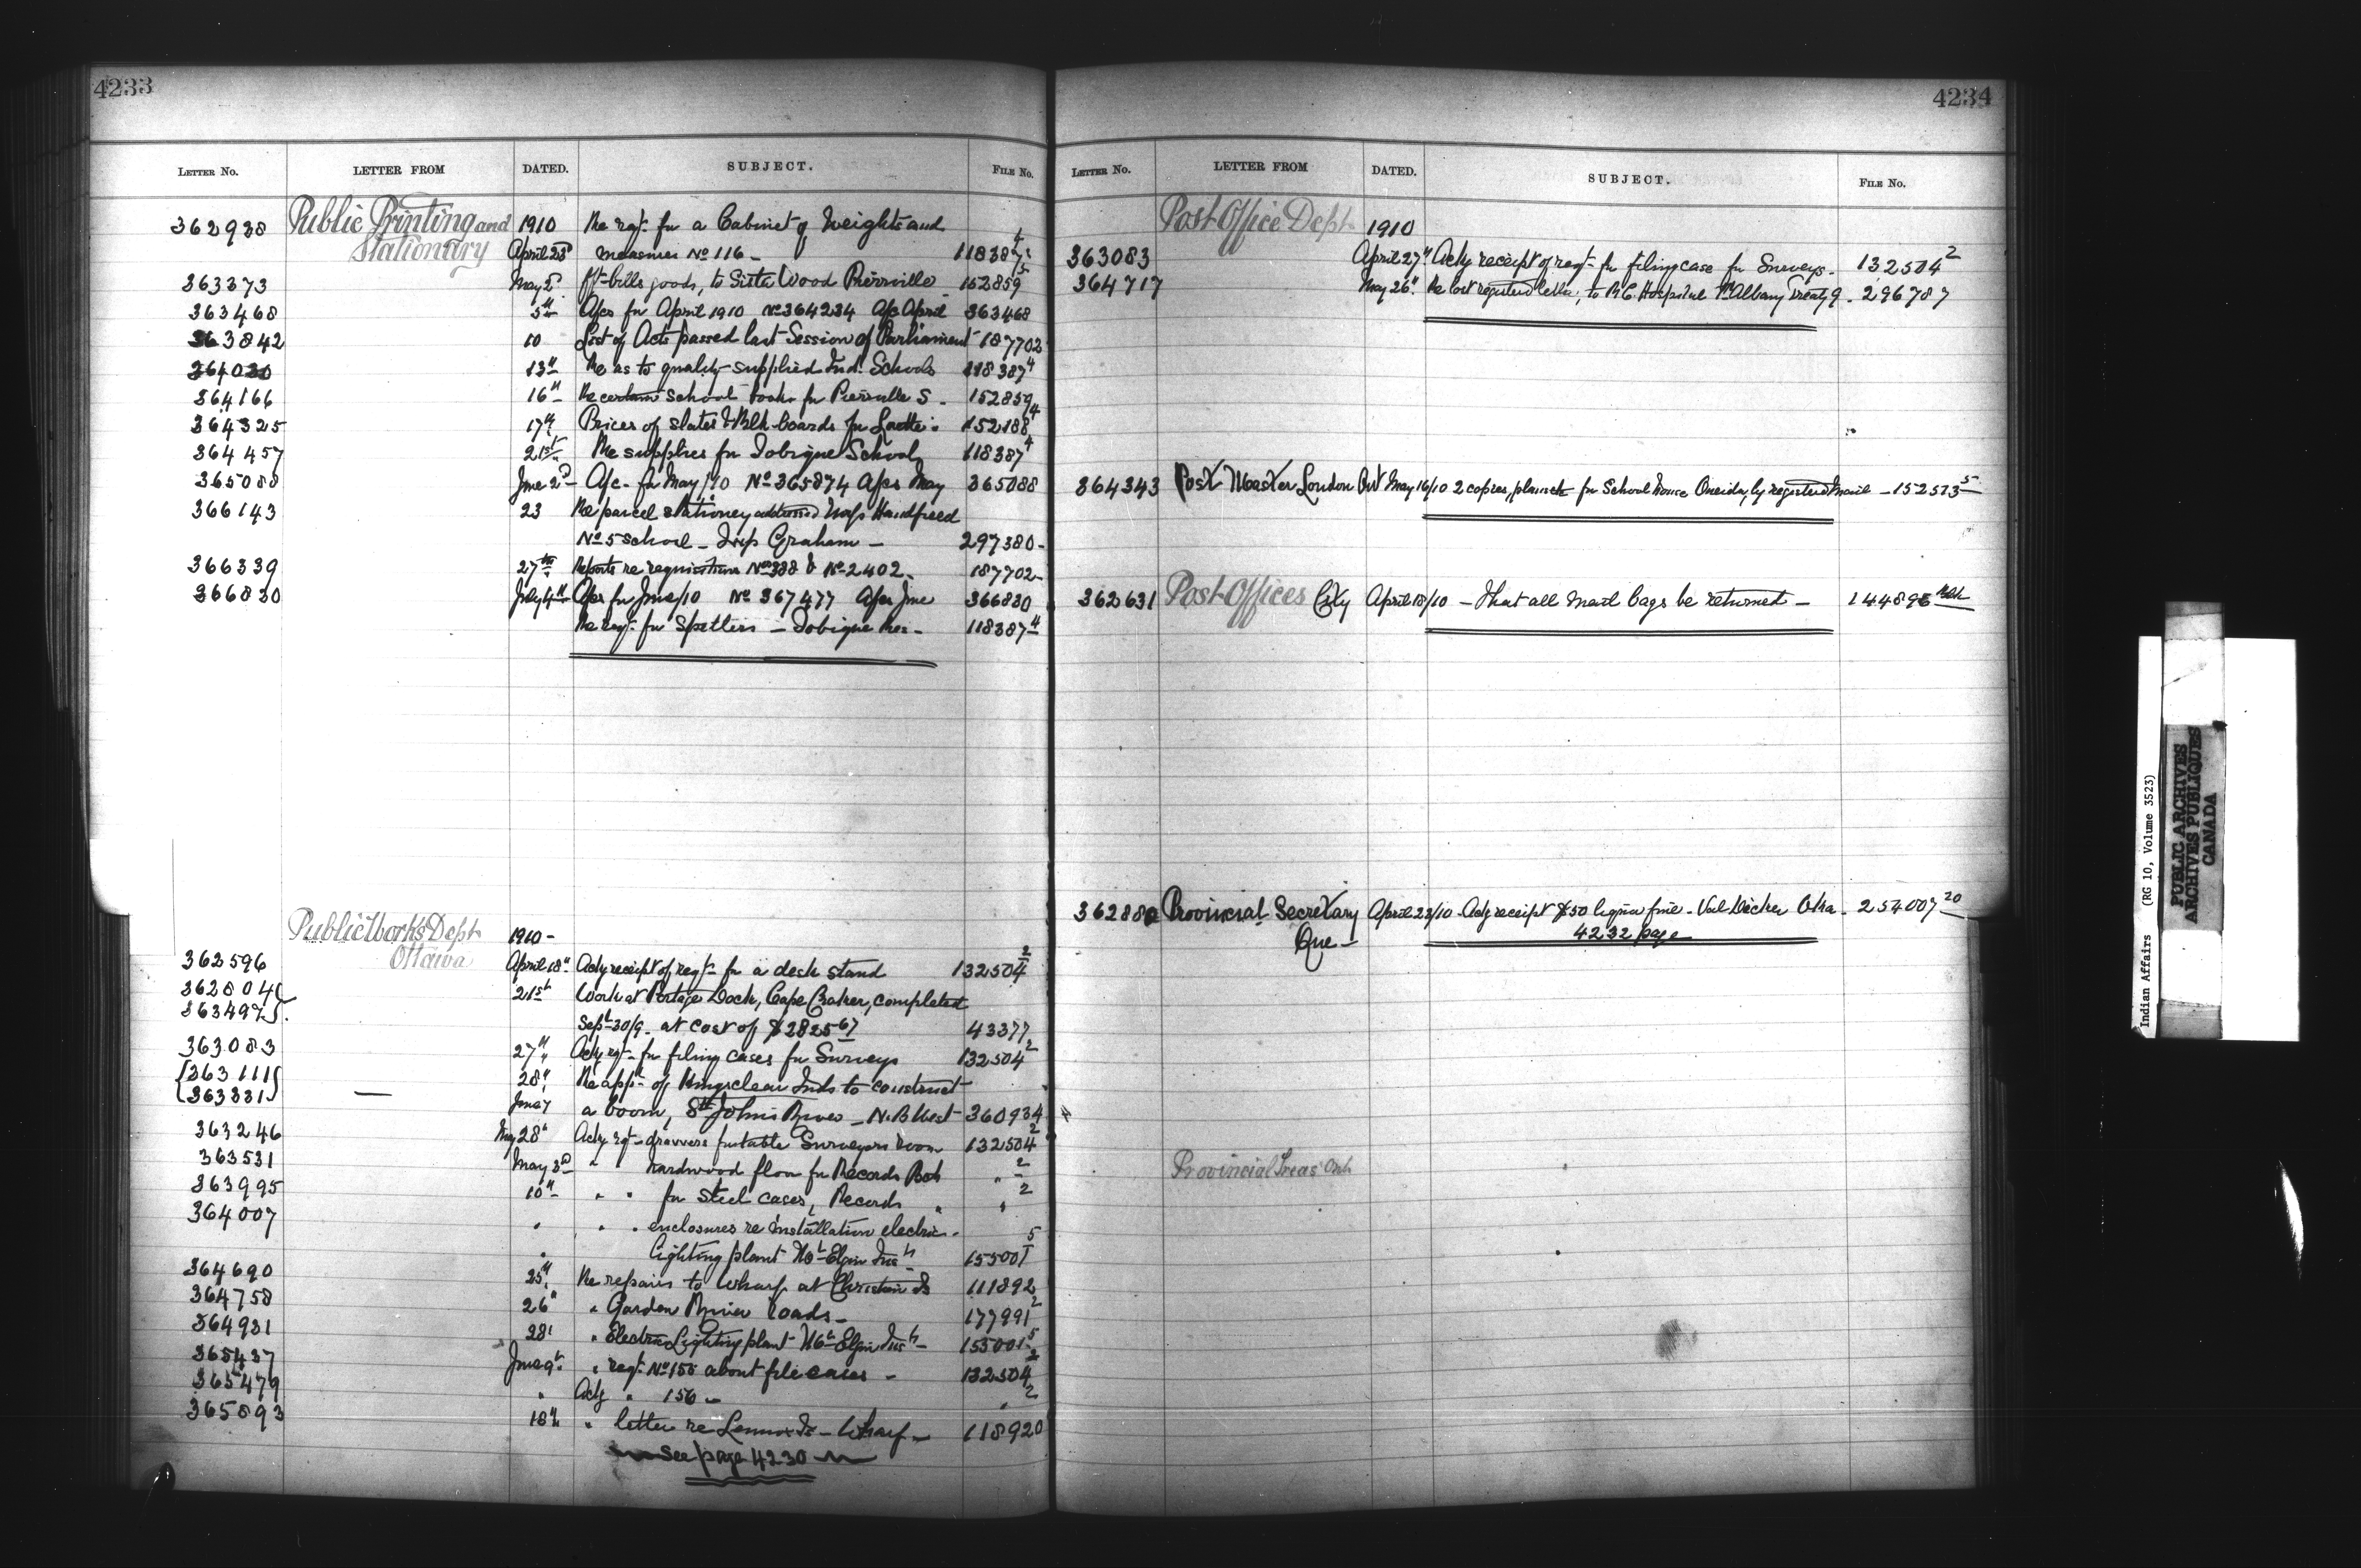 4233
LETTER NO. LETTER FROM DATED. SUBJECT. FILE NO.
362938 Public Printing and 1910 Re reqt. for a Cabinet of Weights and
Stationary April 23d measures No 116 - 118387 4
363373 May 2d ft bills goods, to Sister Wood Pierrville 152859 5
363468 5th A/cs for April 1910 No 364234 A/c April 363468
363842 10 List of Acts passed last Session of Parliament 187702
364030 13th Re as to quality supplied Ind. Schools 118387 4
364166 16th Re certain school books for Pierrville S. - 152859
364325 17th Prices of slates & Blk boards for Lorette. 152188 4
364457 21st Re supplies for Tobique School 118387 4
365088 June 2d A/c. for May/10 No 365874 A/cs May 365088
366143 23 Re parcel stationery addressed
No 5 school - Insp Graham - 297380 -
366339 27th Reports re requisitions No 388 & No 2402. 187702 -
366830 July 4th A/cs for June/10 No 367477 A/cs June 366830
Re reqt. for Spellers - Tobique Res - 118387 4
Public Works Dept 1910 -
Ottawa
362596 April 18th Ackg receipt of reqt. for a desk stand 132504 2
362804 21st Work at Portage Dock, Cape Croker, completed
363497 Sept 30/9. at cost of $2825 67 43377
363083 27th Ackg rqt. for filing cases for Surveys 132504 2
363111 28th Re appn of Kingsclear Inds to construct
363331 — June 7 a boom, St Johns River - N.B West 360934
363246 May 28th Ackg rqt - drawers for table Surveyors room 132504 2
363531 May 3d " " hardwood floor for Records Bch " 2
363995 10th " " for Steel cases, Records " " 2
364007 " " " enclosures re installation electric
" lighting plant Mt Elgin Inst 155001 5
364690 25th Re repairs to Wharf at Christian Is 111892
364758 26th " Garden River roads - 177991 2
364931 28th " Electric Lighting plant Mt Elgin Inst - 155001 5
365437 June 9th " reqt. No 155 about file cases - 132504 2
365479 " Ackg " 156 - " 2
365893 18th " letter re Lennox Is - Wharf - 118920
See page 4230
4234
LETTER NO. LETTER FROM DATED. SUBJECT. FILE NO.
Post Office Dept 1910
363083 April 27th Ackg receipt of reqt for filing case for Surveys - 132504 2
364717 May 26th Re lost registered letter, to R.C. Hospital Ft Albany Treaty 9 - 296787
364343 Post Master London Ont May 16/10 2 copies, plans for School house Oneida, by registered mail - 152513 5
362631 Post Offices City April 18/10 - That all mail bags be returned - 144896
362880 Provincial Secretary April 23/10 - Ackg receipt $50 liquor fine - Val Decker Oka - 254007 20
Que - 4232 page
Provincial Treas Ont
Indian Affairs (RG 10, Volume 3523)
PUBLIC ARCHIVES
ARCHIVES PUBLIQUES
CANADA